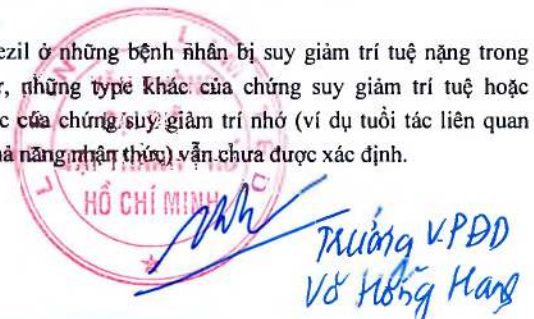 ezil ở những bệnh nhân bị suy giảm trí tuệ nặng trong
r, những type khác của chứng suy giảm trí tuệ hoặc
c của chứng suy giảm trí nhớ (ví dụ tuổi tác liên quan
hả năng nhận thức) vẫn chưa được xác định.
TẠI THÀNH PHỐ
HỒ CHÍ MINH
Trưởng V.PĐD
Võ Hồng Hang